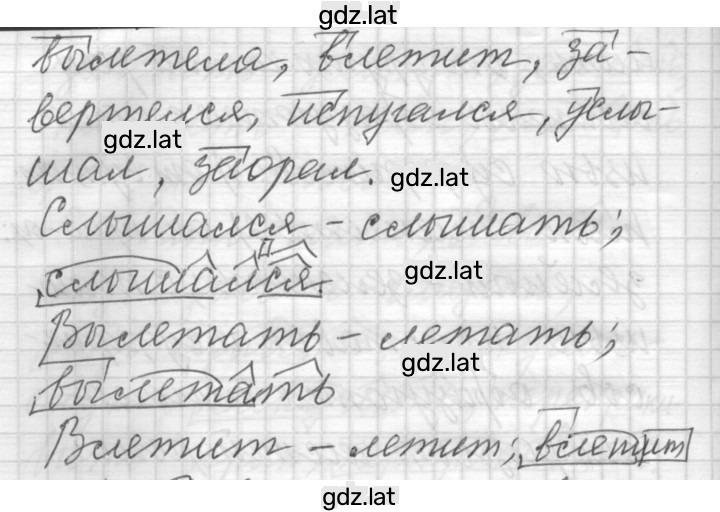 gdz.lat
вылетела, влетит, за-
вертелся, испугался, услы-
gdz.lat
шал, заорал. gdz.lat
Слышался – слышать;
слышался gdz.lat
Д
Вылетать – летать;
gdz.lat
вылетать
Влетит – летит; влетит
gdz.lat